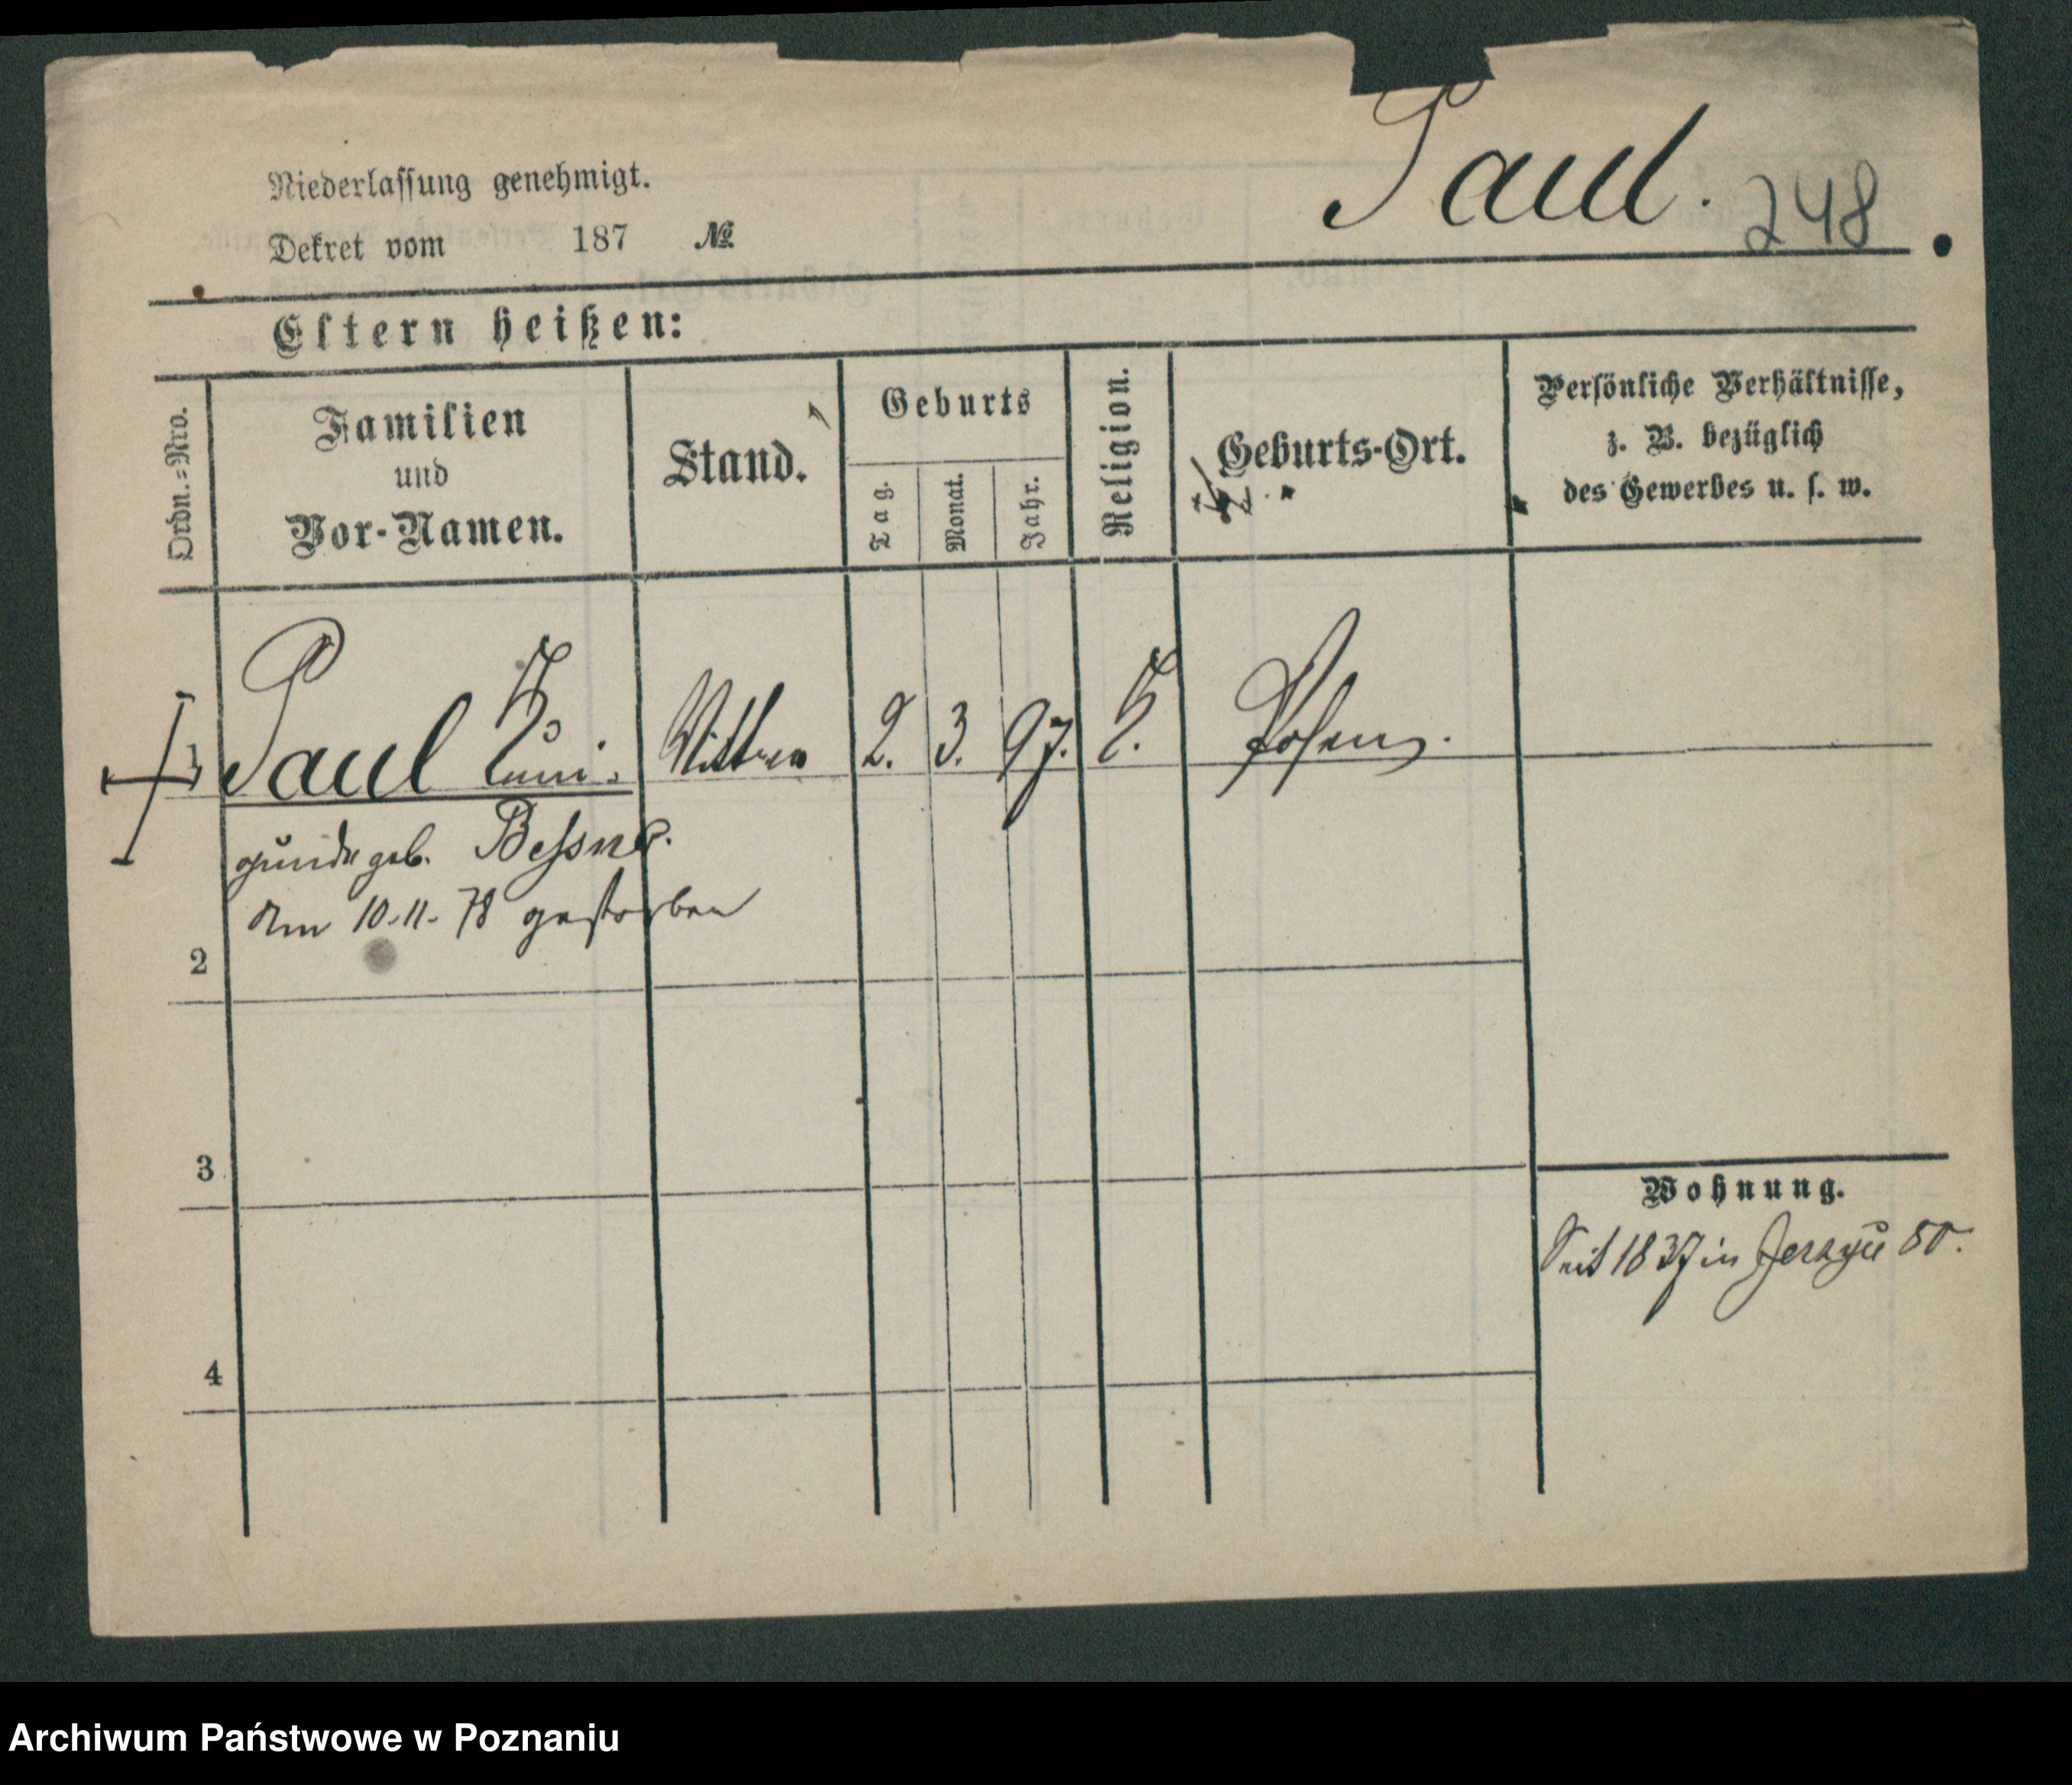 Paul. 248
Niederlassung genehmigt.
Dekret vom 187 №
Eltern heißen:
Ordn.=Nro.
Familien
und
Vor-Namen.
Stand.
Geburts
Tag.
Monat.
Jahr.
Religion.
Geburts-Ort.
Persönliche Verhältnisse,
z. B. bezüglich
des Gewerbes u. s. w.
1 Paul Kuni- Wittwe 2. 3. 97. K. Posen.
gunde geb. Bessner.
Am 10.11.78 gestorben
2
3
Wohnung.
Seit 1837 in Jerzyce 50.
4
Archiwum Państwowe w Poznaniu